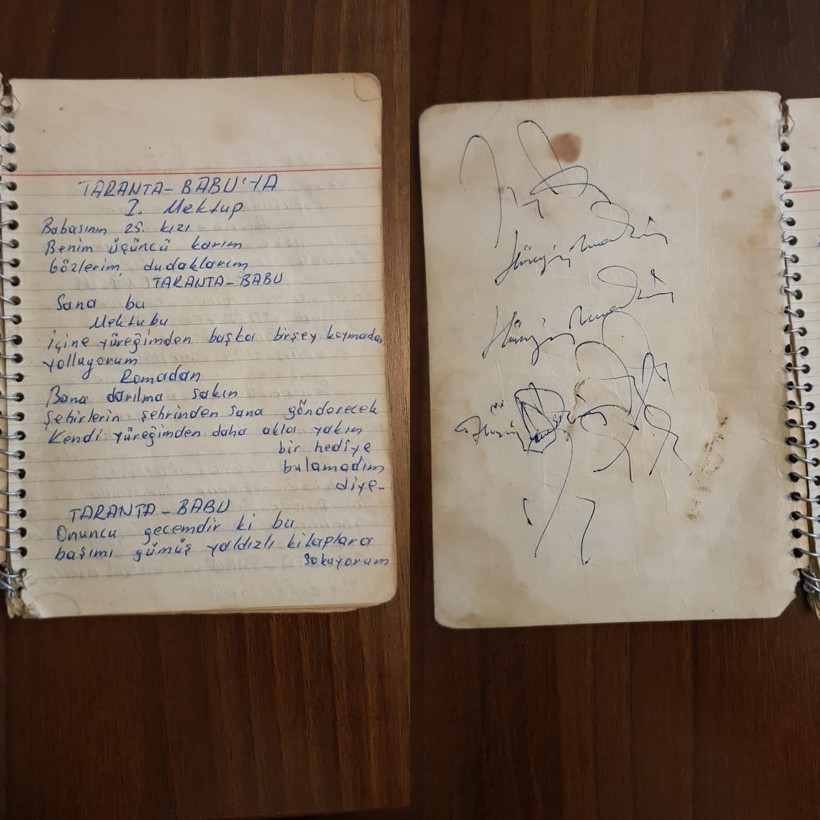 TARANTA-BABU'YA
I. Mektup
Babasının 25. kızı
Benim üçüncü karım
Gözlerim, dudaklarım
TARANTA-BABU
Sana bu
Mektubu
içine yüreğimden başka birşey koymadan
yolluyorum
Romadan
Bana darılma sakın
Şehirlerin şehrinden sana gönderecek
Kendi yüreğimden daha akla yakın
bir hediye
bulamadım
diye-
TARANTA-BABU
Onuncu gecemdir ki bu
başımı gümüş yaldızlı kitaplara
Sokuyorum